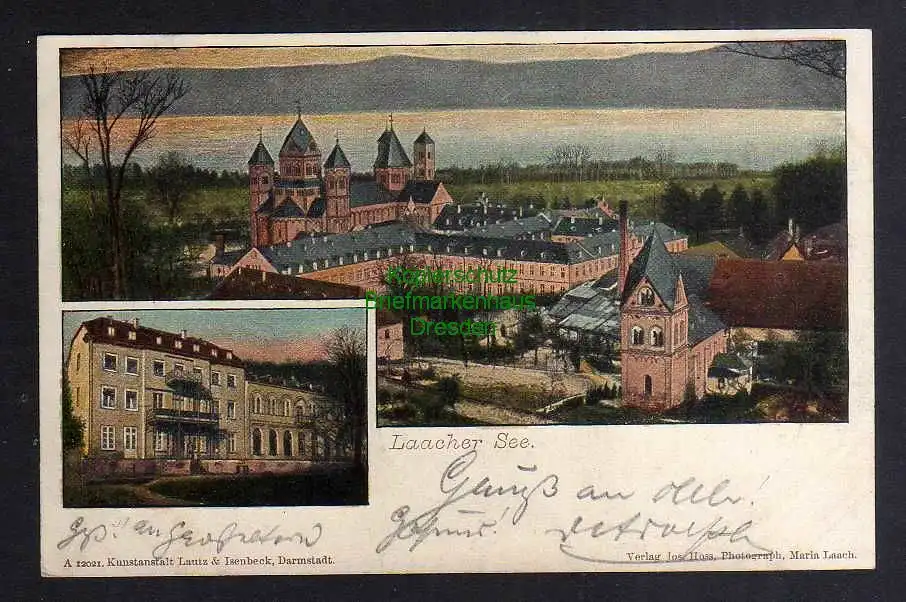 Kopierschutz
Briefmarkenhaus
Dresden
Laacher See.
Gruß an
Gruß! an Großeltern
A 12021. Kunstanstalt Lautz & Isenbeck, Darmstadt.
Verlag Jos. Hoss, Photograph, Maria Laach.